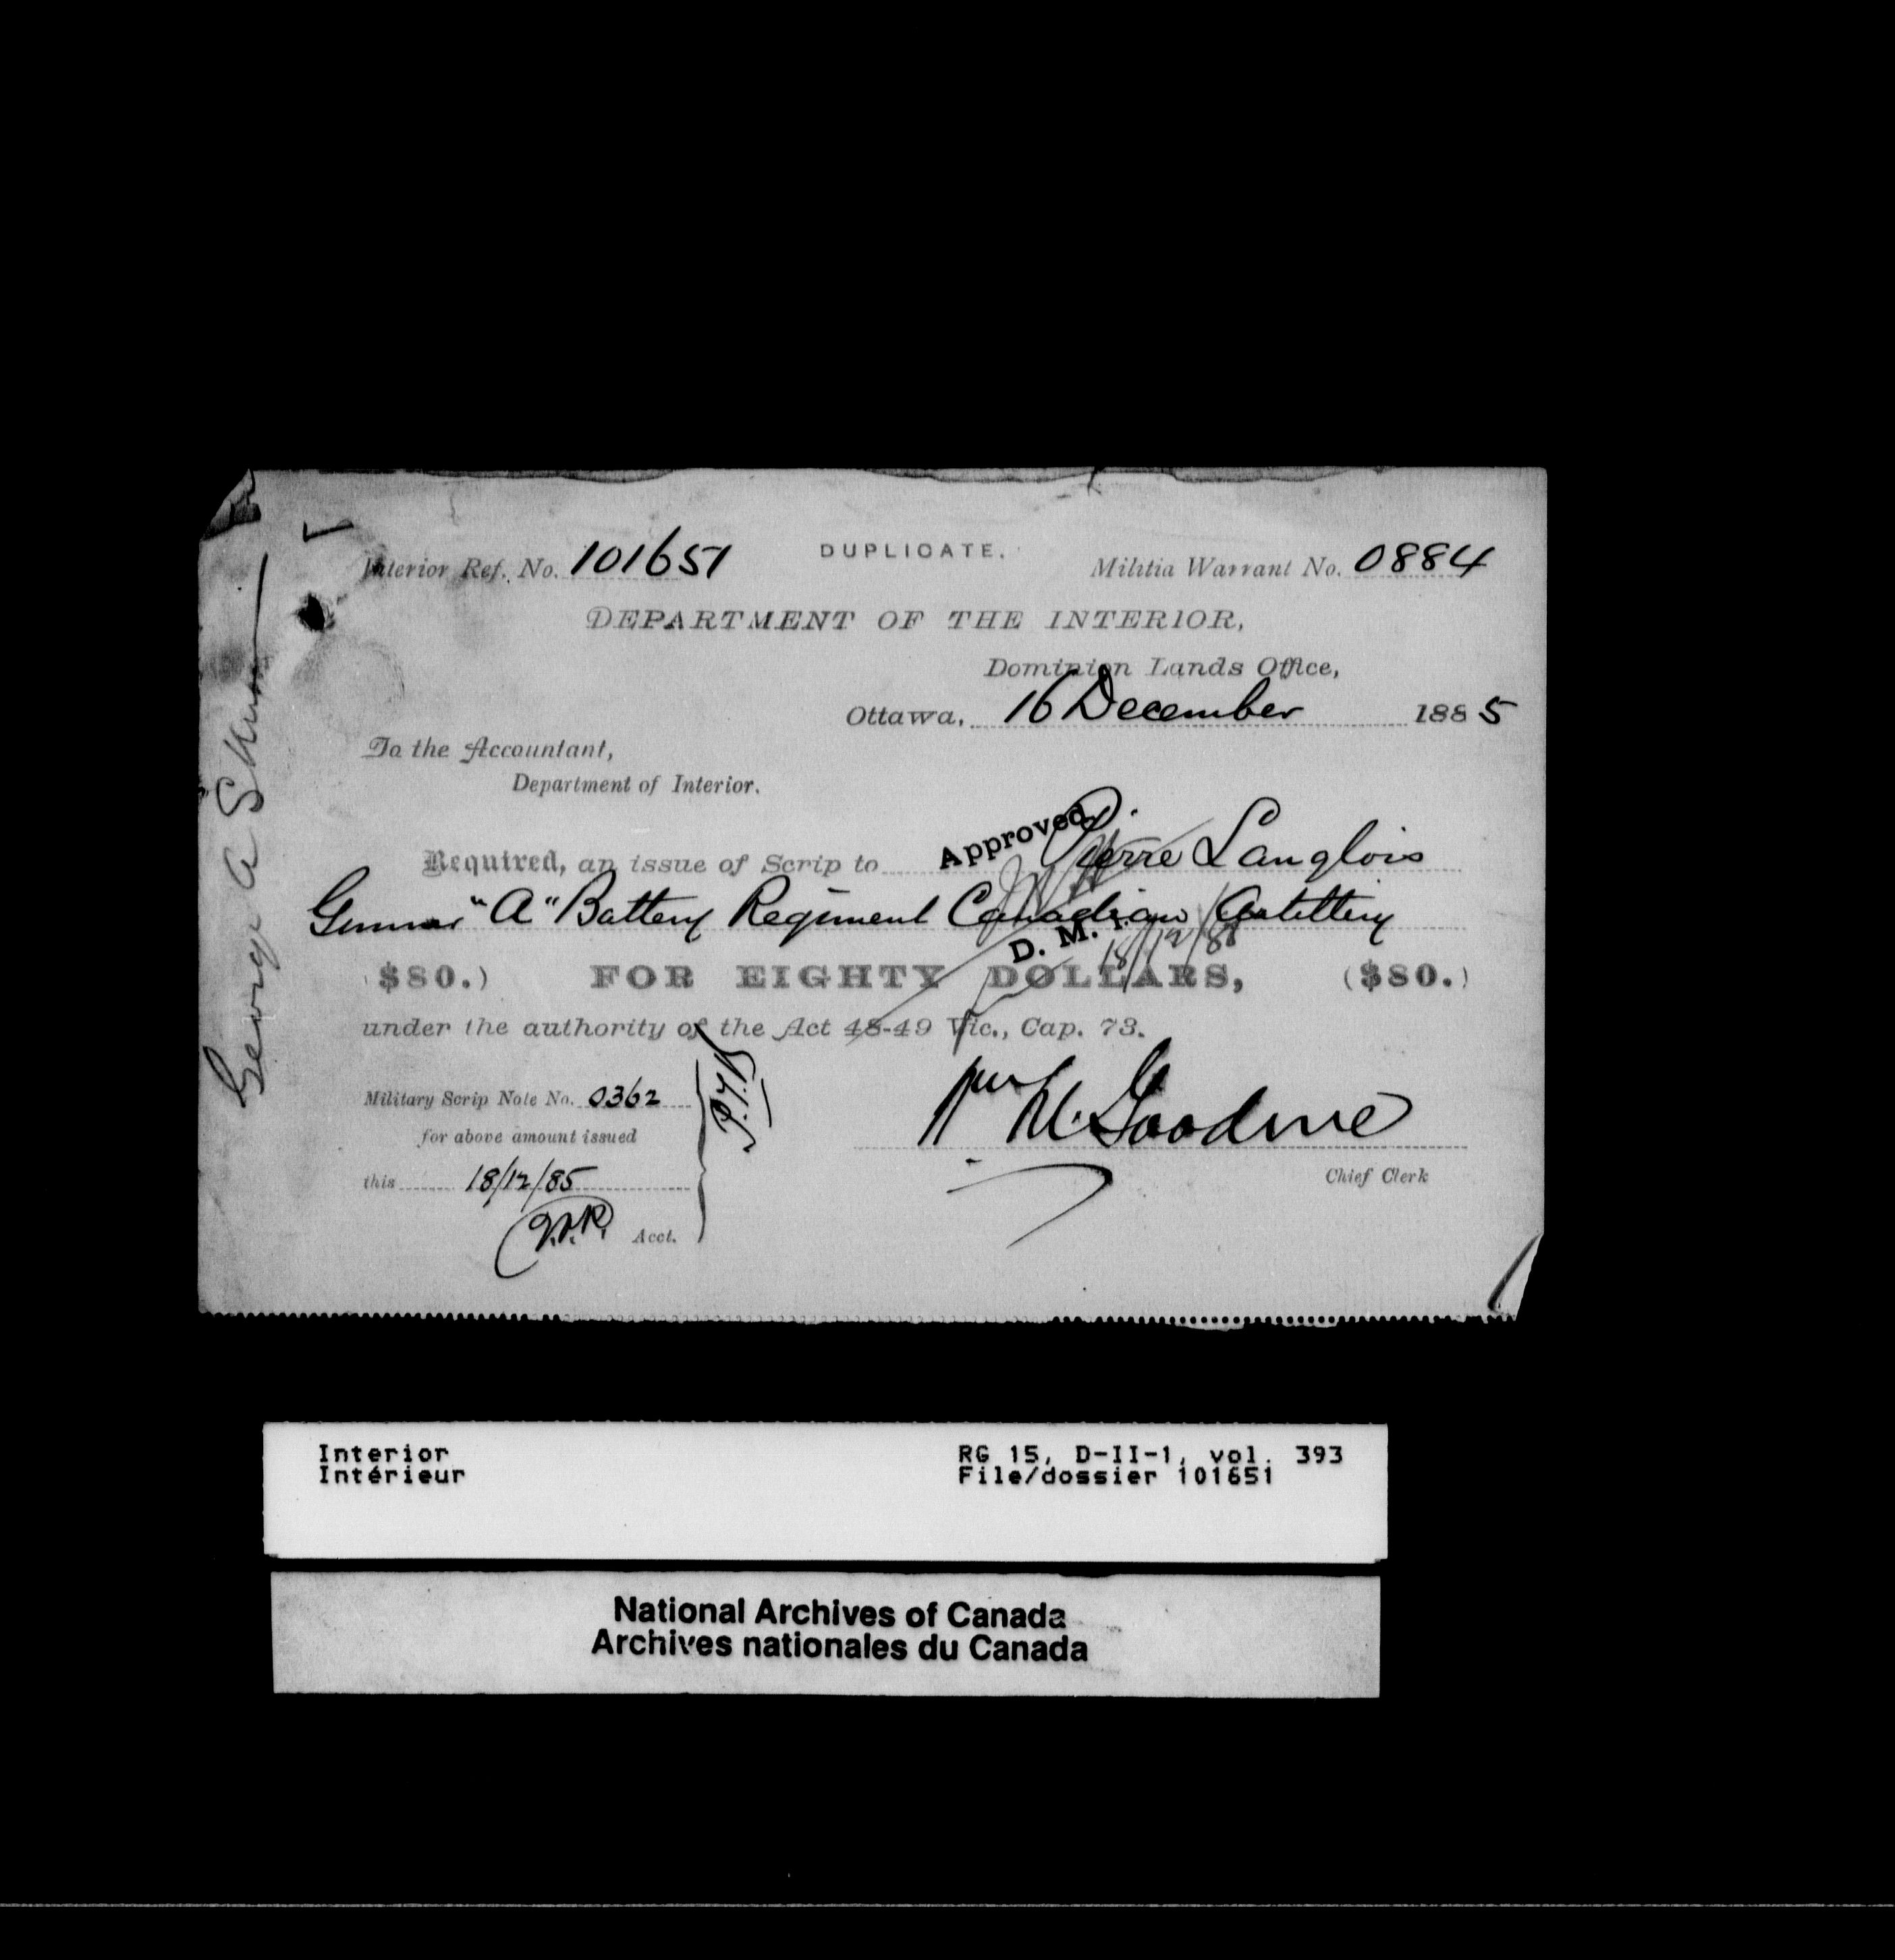 Interior Ref. No. 101651
DUPLICATE.
Militia Warrant No. 0884
DEPARTMENT OF THE INTERIOR,
Dominion Lands Office,
Ottawa, 16 December 1885
To the Accountant,
Department of Interior.
Approved
Required, an issue of Scrip to Pierre Langlois
Gunner "A" Battery Regiment Canadian Artillery
D. M. I.
18/12/85
($80.) FOR EIGHTY DOLLARS, ($80.)
under the authority of the Act 48-49 Vic., Cap. 73.
Military Scrip Note No. 0362
for above amount issued
this 18/12/85
Acct.
Chief Clerk
George A
Interior
Intérieur
RG 15, D-II-1, vol. 393
File/dossier 101651
National Archives of Canada
Archives nationales du Canada